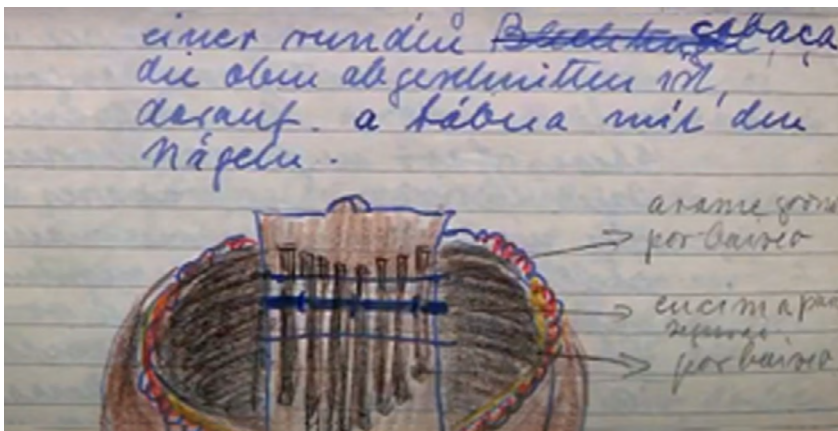 einer runden cabaça,
die oben abgeschnitten ist,
darauf. a tábua mit den
Nägeln.
arame
por baixo
encima
por baixo